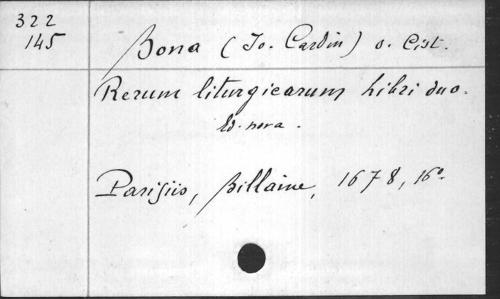 322
145
Bona (Jo. Cardin) o. Cist.
Rerum liturgicarum libri duo.
Ed. nova.
Parisiis, Billaine, 1678, 16°.